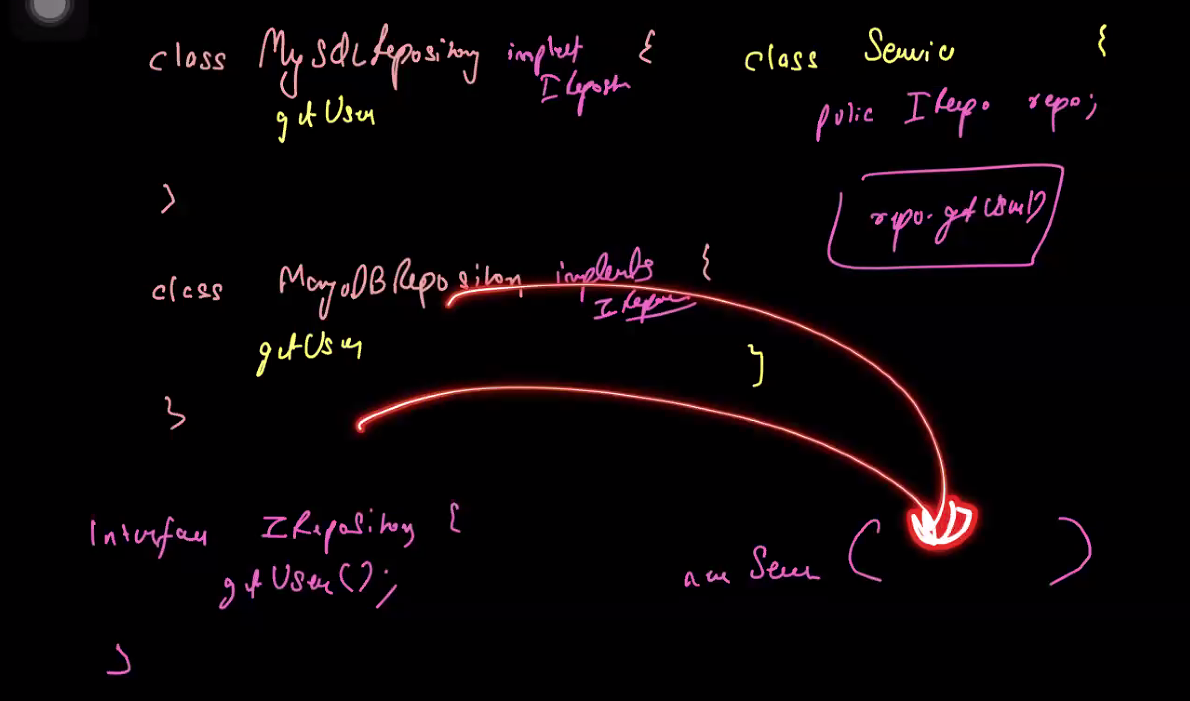 class MySQLRepository implet {
IRepostr
getUser
}
class MongoDBRepository implents {
IRepo
getUser
}
Interface IRepository {
getUser();
}
class Service {
pulic IRepo repo;
repo.getUser()
}
new Server ( )